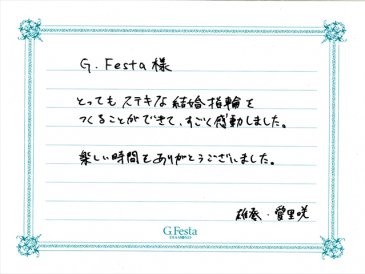 G. Festa 様
とっても ステキな 結婚指輪を
つくることができて、すごく感動しました。
楽しい時間をありがとうございました。
愛里咲
G.Festa
DIAMOND